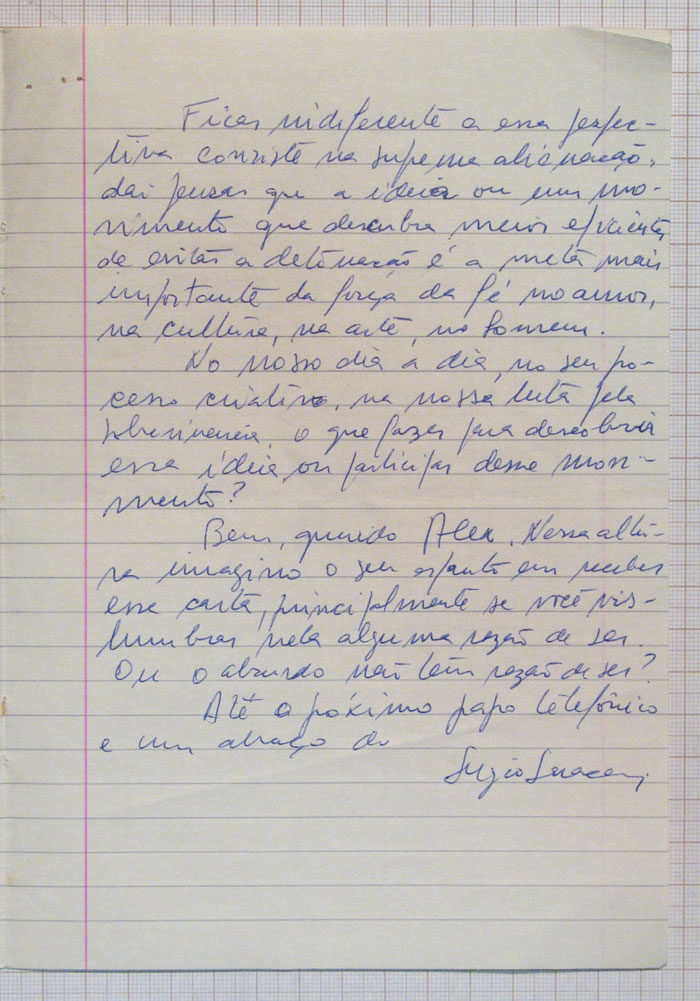 Ficar indiferente a essa perspec-
tiva consiste na suprema alienação,
daí pensar que a ideia ou um mo-
vimento que descubra meios eficientes
de evitar a detonação é a meta mais
importante da força da fé no amor,
na cultura, na arte, no homem.
No nosso dia a dia, no seu po-
cesso criativo, na nossa luta pela
sobrevivencia, o que fazer para descobrir
essa ideia ou participar desse movi-
mento?
Bem, querido Alex. Nessa altu-
ra imagino o seu espanto em receber
esse carta, principalmente se você vis-
lumbrar nela alguma razão de ser.
Ou o absurdo não tem razão de ser?
Até o póximo papo telefônico
e um abraço do